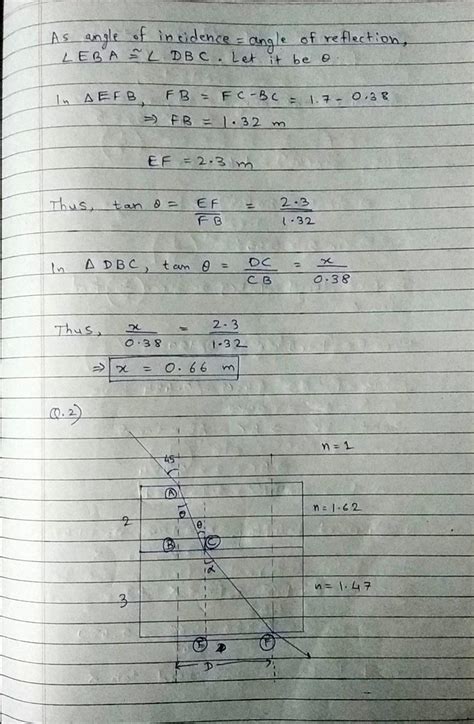 As angle of incidence = angle of reflection,
∠EBA ≅ ∠ DBC. Let it be θ.
In ΔEFB, FB = FC-BC = 1.7 - 0.38
⇒ FB = 1.32 m
EF = 2.3 m
Thus, tan θ = EF/FB = 2.3/1.32
In Δ DBC, tan θ = DC/CB = x/0.38
Thus, x/0.38 = 2.3/1.32
⇒ x = 0.66 m
Q.2)
n=1
45
A
θ
n=1.62
2
θ
B C
α
n=1.47
3
E F
D